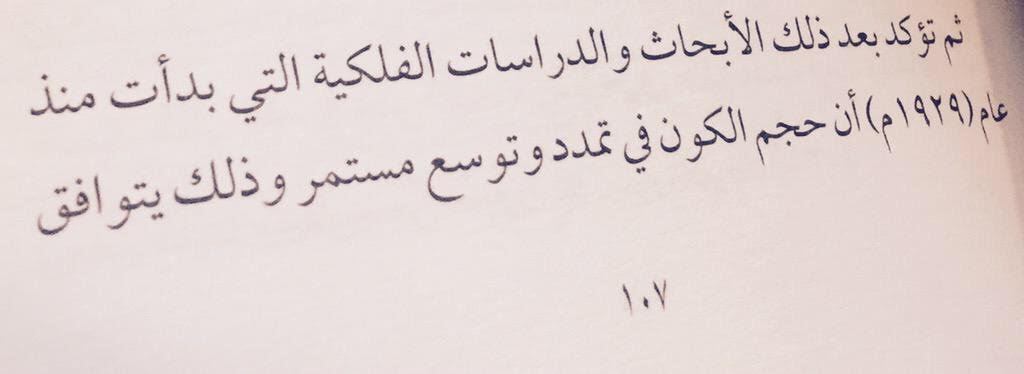 ثم تؤكد بعد ذلك الأبحاث والدراسات الفلكية التي بدأت منذ
عام (١٩٢٩م) أن حجم الكون في تمدد وتوسع مستمر وذلك يتوافق
١٠٧